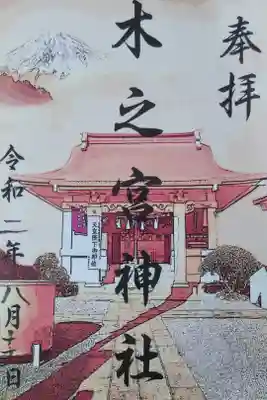 奉拝
木之宮神社
令和二年八月十二日